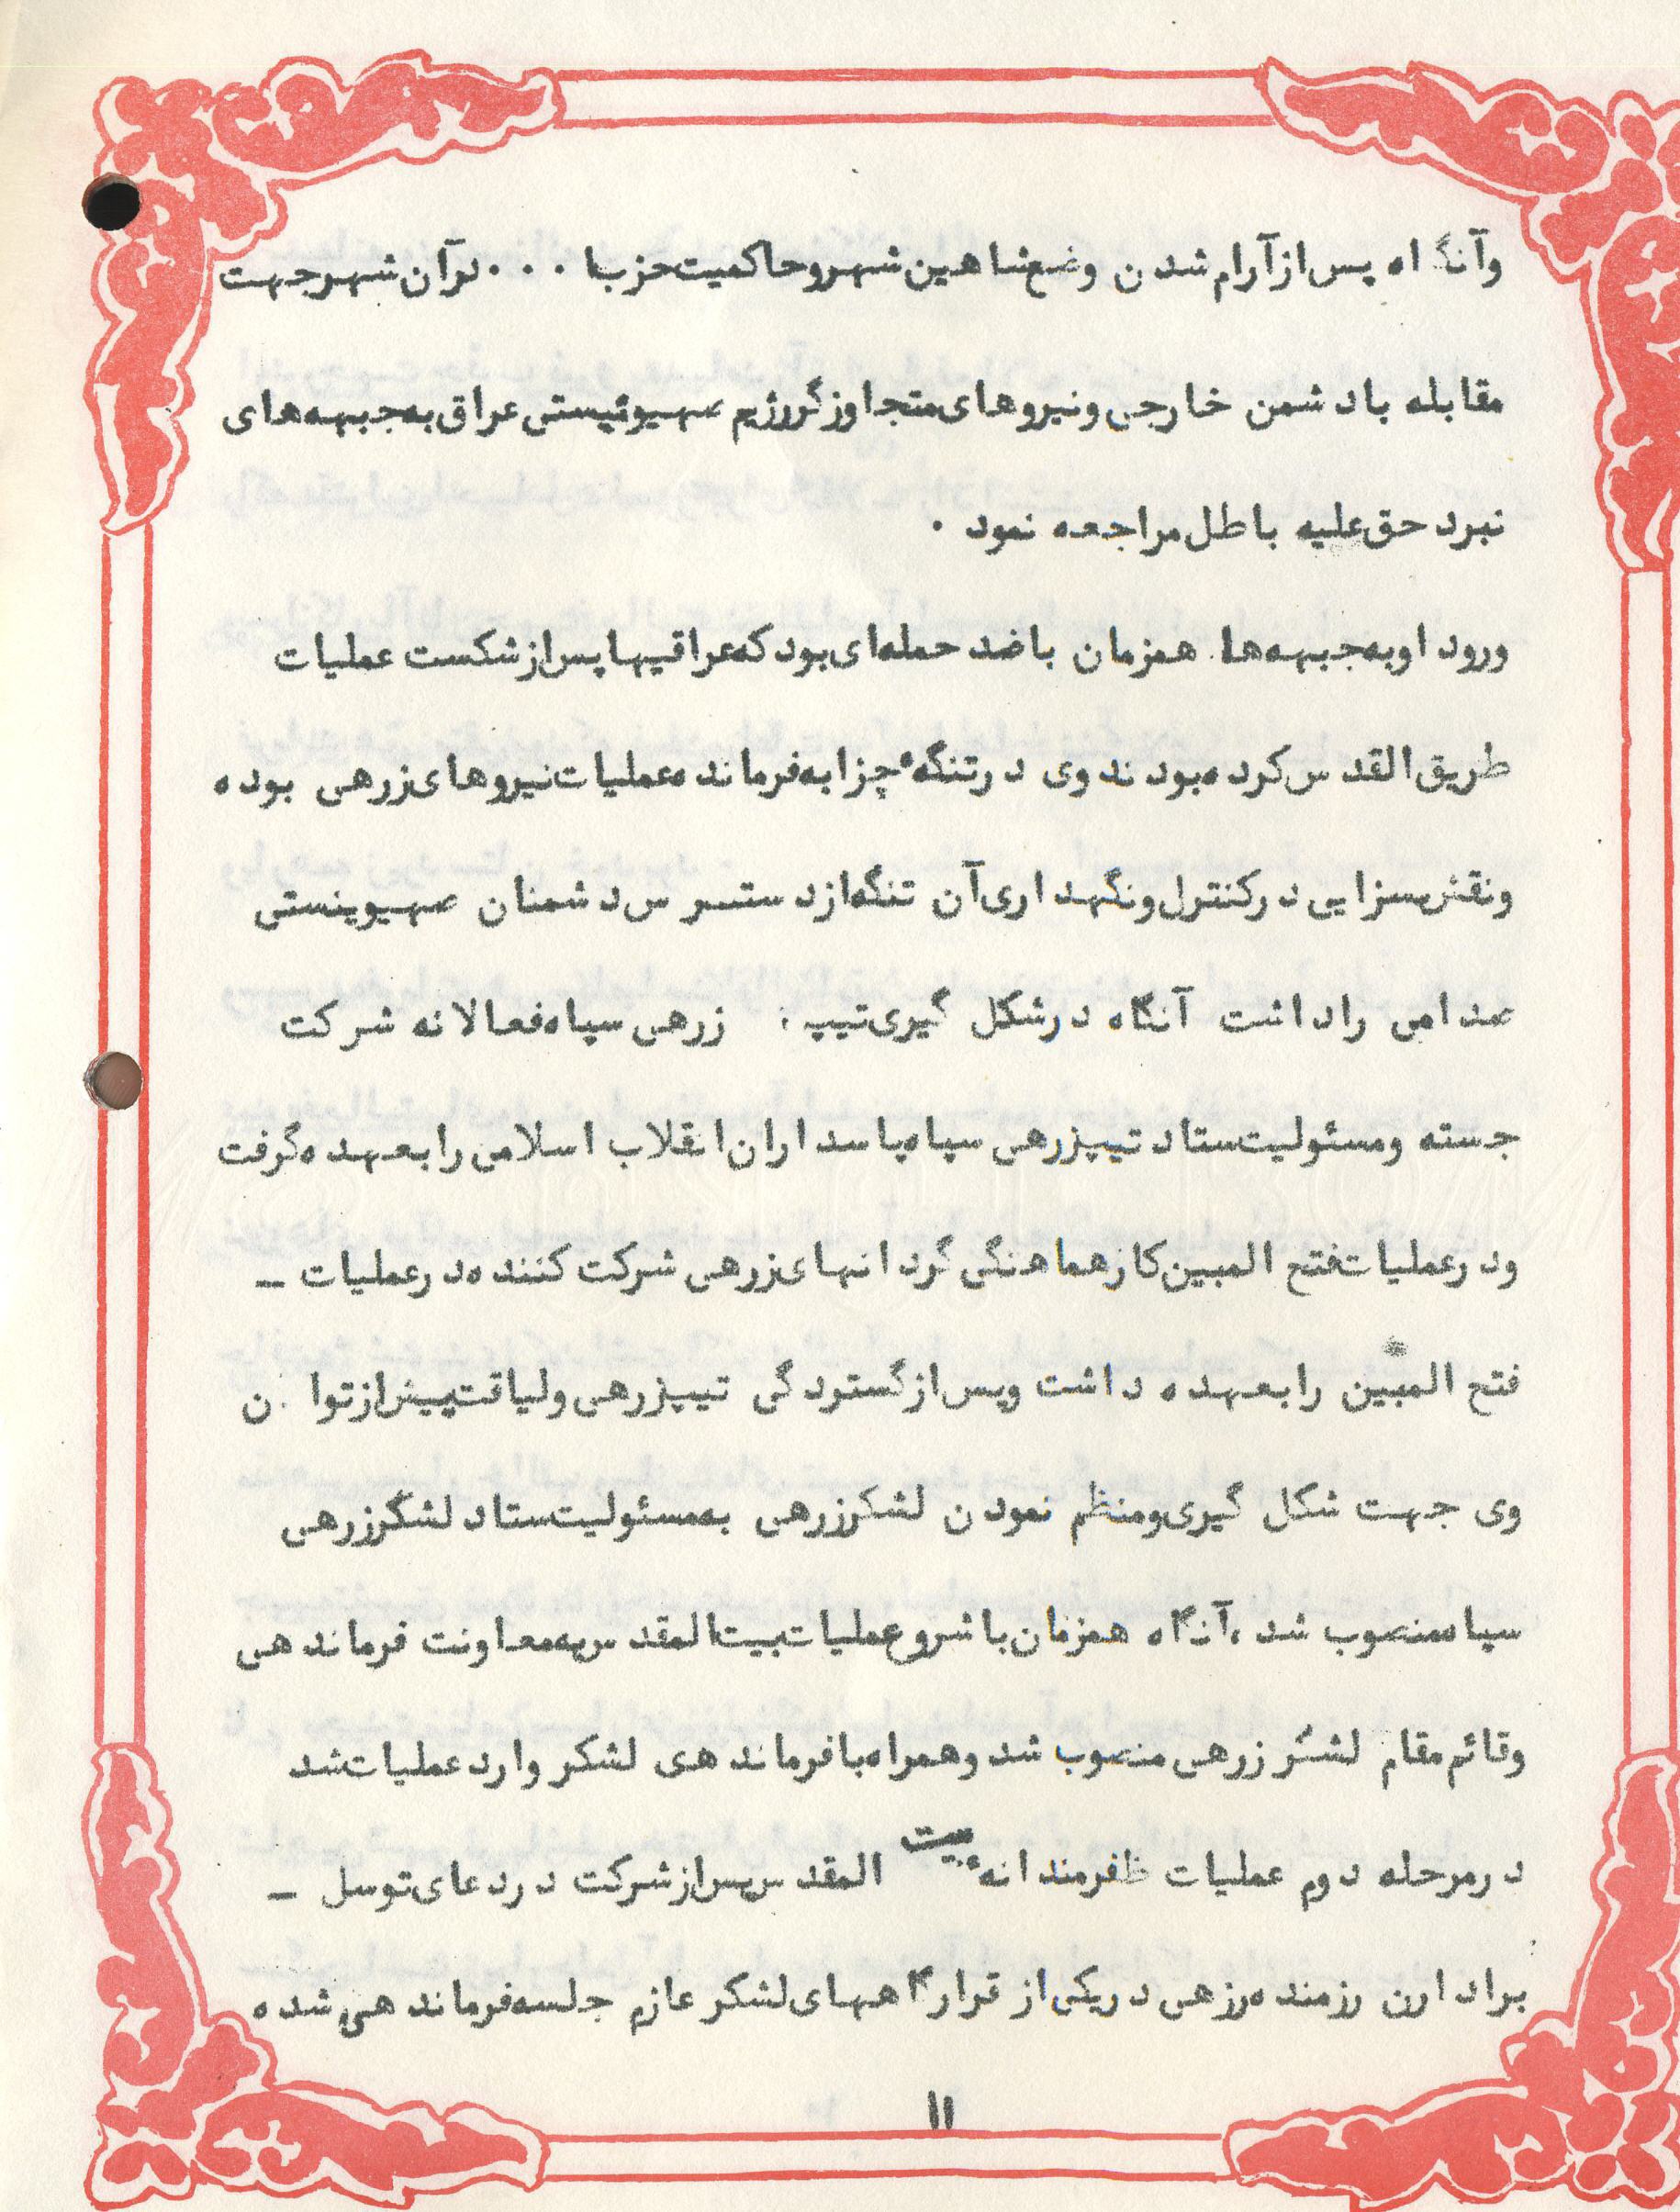 وآنگاه پس از آرام شدن وضع شاهین شهر و حاکمیت حزب ا . . . در آن شهر جهت
مقابله با دشمن خارجی و نیروهای متجاوزگر رژیم صهیونیستی عراق به جبهه های
نبرد حق علیه باطل مراجعه نمود .
ورود او به جبهه ها همزمان با ضد حمله ای بود که عراقیها پس از شکست عملیات
طریق القدس کرده بودند وی در تنگه ء چزابه فرمانده عملیات نیروهای زرهی بوده
و نقش بسزایی در کنترل و نگهداری آن تنگه از دسترس دشمنان صهیونیستی
صدامی را داشت آنگاه در شکل گیری تیپ زرهی سپاه فعالانه شرکت
جسته و مسئولیت ستاد تیپ زرهی سپاه پاسداران انقلاب اسلامی را بعهده گرفت
و در عملیات فتح المبین کار هماهنگی گردانهای زرهی شرکت کننده در عملیات –
فتح المبین را بعهده داشت و پس از گستردگی تیپ زرهی و لیاقت بیش از توان
وی جهت شکل گیری و منظم نمودن لشکر زرهی به مسئولیت ستاد لشگر زرهی
سپاه منصوب شد ، آنگاه همزمان با شروع عملیات بیت المقدس به معاونت فرماندهی
و قائم مقام لشگر زرهی منصوب شد و همراه با فرماندهی لشکر وارد عملیات شد
در مرحله دوم عملیات ظفرمندانه ء بیت المقدس پس از شرکت در دعای توسل –
برادارن رزمنده زرهی در یکی از قرارگاههای لشکر عازم جلسه فرماندهی شده
۱۱